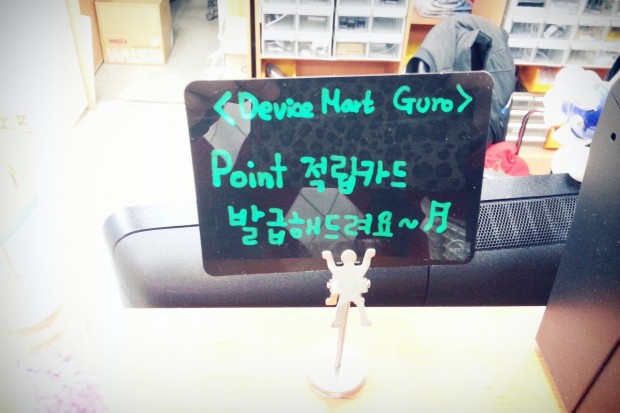 <Device Mart Guro>
Point 적립카드
발급해드려요~♬